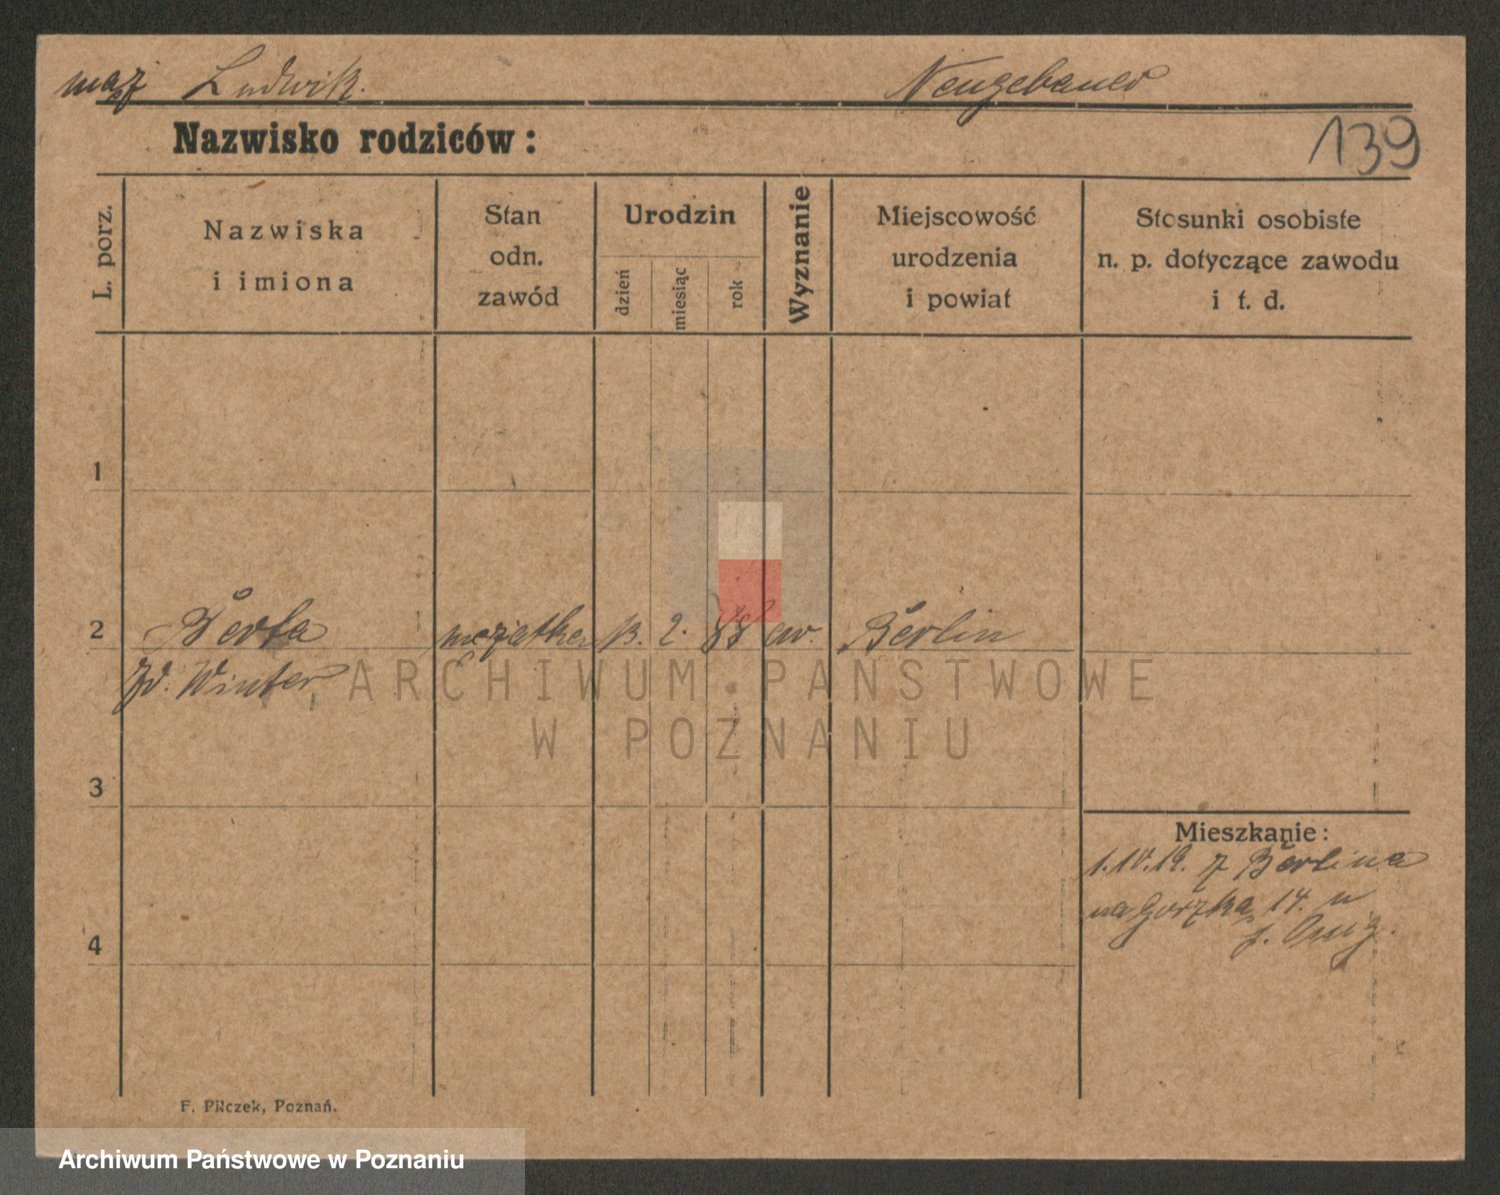 mąż Ludwik. Neugebauer
Nazwisko rodziców:
139
L. porz.
Nazwiska
i imiona
Stan
odn.
zawód
Urodzin
dzień
miesiąc
rok
Wyznanie
Miejscowość
urodzenia
i powiat
Stosunki osobiste
n. p. dotyczące zawodu
i t. d.
1
2 Berta mężatka 13. 2. 88 ew. Berlin
Zd. Winter
ARCHIWUM PAŃSTWOWE
W POZNANIU
3
Mieszkanie:
1.10.19. z Berlina
na 14. u
4
F. Pilczek, Poznań.
Archiwum Państwowe w Poznaniu